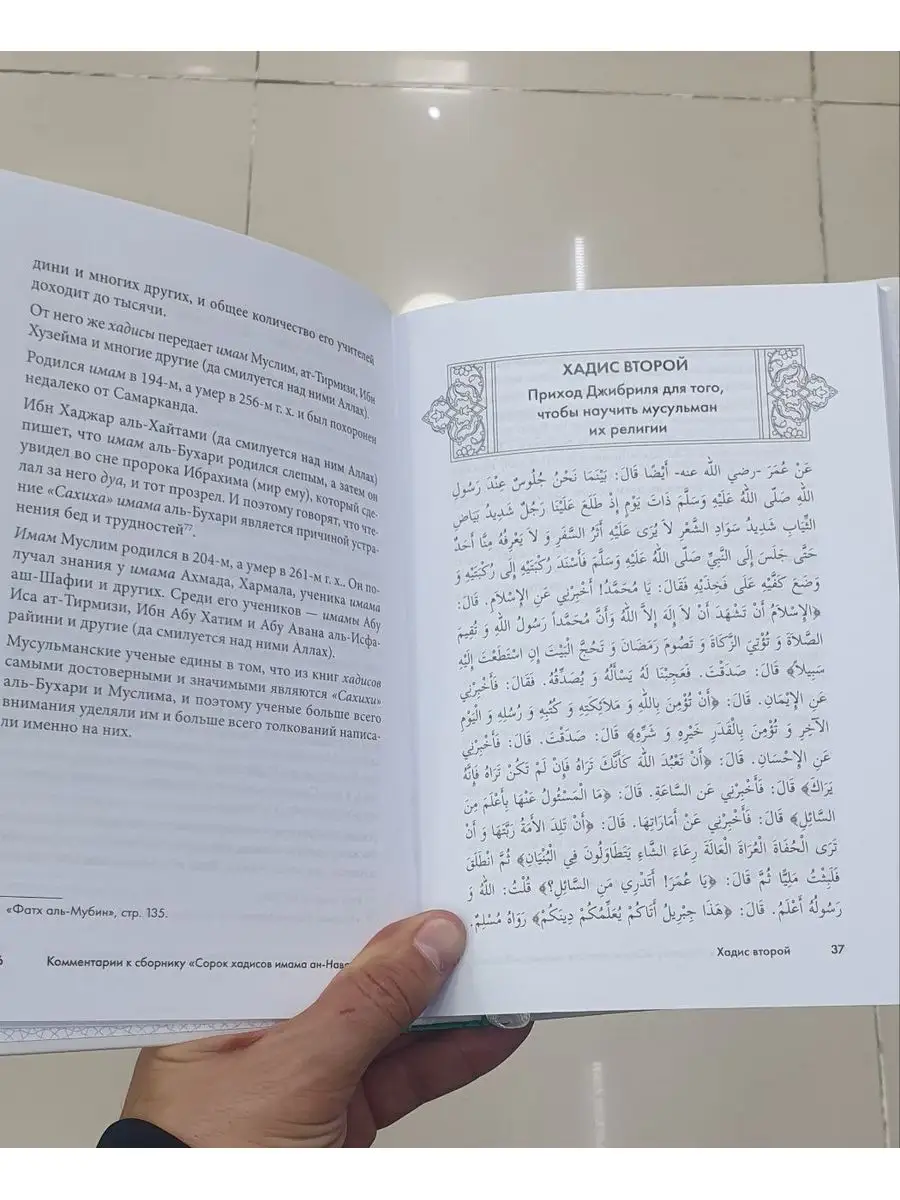 дини и многих других, и общее количество его учителей
доходит до тысячи.
От него же хадисы передает имам Муслим, ат-Тирмизи, Ибн
Хузейма и многие другие (да смилуется над ними Аллах).
Родился имам в 194-м, а умер в 256-м г. х. и был похоронен
недалеко от Самарканда.
Ибн Хаджар аль-Хайтами (да смилуется над ним Аллах)
пишет, что имам аль-Бухари родился слепым, а затем он
увидел во сне пророка Ибрахима (мир ему), который сде-
лал за него дуа, и тот прозрел. И поэтому говорят, что чте-
ние «Сахиха» имама аль-Бухари является причиной устра-
нения бед и трудностей77.
Имам Муслим родился в 204-м, а умер в 261-м г. х.. Он по-
лучал знания у имама Ахмада, Хармала, ученика имама
аш-Шафии и других. Среди его учеников — имамы Абу
Иса ат-Тирмизи, Ибн Абу Хатим и Абу Авана аль-Исфа-
райини и другие (да смилуется над ними Аллах).
Мусульманские ученые едины в том, что из книг хадисов
самыми достоверными и значимыми являются «Сахихи»
аль-Бухари и Муслима, и поэтому ученые больше всего
внимания уделяли им и больше всего толкований написа-
ли именно на них.
«Фатх аль-Мубин», стр. 135.
6 Комментарии к сборнику «Сорок хадисов имама ан-Нава
ХАДИС ВТОРОЙ
Приход Джибриля для того,
чтобы научить мусульман
их религии
عَنْ عُمَرَ -رضي الله عنه- أَيْضًا قَالَ: بَيْنَمَا نَحْنُ جُلُوسٌ عِنْدَ رَسُولِ
اللهِ صَلَّى اللهُ عَلَيْهِ وَسَلَّمَ ذَاتَ يَوْمٍ إِذْ طَلَعَ عَلَيْنَا رَجُلٌ شَدِيدُ بَيَاضِ
الثِّيَابِ شَدِيدُ سَوَادِ الشَّعْرِ لاَ يُرَى عَلَيْهِ أَثَرُ السَّفَرِ وَ لاَ يَعْرِفُهُ مِنَّا أَحَدٌ
حَتَّى جَلَسَ إِلَى النَّبِيِّ صَلَّى اللهُ عَلَيْهِ وَسَلَّمَ فَأَسْنَدَ رُكْبَتَيْهِ إِلَى رُكْبَتَيْهِ وَ
وَضَعَ كَفَّيْهِ عَلَى فَخِذَيْهِ فَقَالَ: يَا مُحَمَّدُ! أَخْبِرْنِي عَنِ الإِسْلاَمِ. قَالَ:
﴿الإِسْلاَمُ أَنْ تَشْهَدَ أَنْ لاَ إِلَهَ إِلاَّ اللهُ وَأَنَّ مُحَمَّداً رَسُولُ اللهِ وَ تُقِيمَ
الصَّلاَةَ وَ تُؤْتِيَ الزَّكَاةَ وَ تَصُومَ رَمَضَانَ وَ تَحُجَّ الْبَيْتَ إِنِ اسْتَطَعْتَ إِلَيْهِ
سَبِيلاً﴾ قَالَ: صَدَقْتَ. فَعَجِبْنَا لَهُ يَسْأَلُهُ وَ يُصَدِّقُهُ. فَقَالَ: فَأَخْبِرْنِي
عَنِ الإِيْمَانِ. قَالَ: ﴿أَنْ تُؤْمِنَ بِاللهِ وَ مَلاَئِكَتِهِ وَ كُتُبِهِ وَ رُسُلِهِ وَ الْيَوْمِ
الآخِرِ وَ تُؤْمِنَ بِالْقَدَرِ خَيْرِهِ وَ شَرِّهِ﴾ قَالَ: صَدَقْتَ. قَالَ: فَأَخْبِرْنِي
عَنِ الإِحْسَانِ. قَالَ: ﴿أَنْ تَعْبُدَ اللهَ كَأَنَّكَ تَرَاهُ فَإِنْ لَمْ تَكُنْ تَرَاهُ فَإِنَّهُ
يَرَاكَ﴾ قَالَ: فَأَخْبِرْنِي عَنِ السَّاعَةِ. قَالَ: ﴿مَا الْمَسْئُولُ عَنْهَا بِأَعْلَمَ مِنَ
السَّائِلِ﴾ قَالَ: فَأَخْبِرْنِي عَنْ أَمَارَاتِهَا. قَالَ: ﴿أَنْ تَلِدَ الأَمَةُ رَبَّتَهَا وَ أَنْ
تَرَى الْحُفَاةَ الْعُرَاةَ الْعَالَةَ رِعَاءَ الشَّاءِ يَتَطَاوَلُونَ فِي الْبُنْيَانِ﴾ ثُمَّ انْطَلَقَ
فَلَبِثْتُ مَلِيًّا ثُمَّ قَالَ: ﴿يَا عُمَرُ! أَتَدْرِي مَنِ السَّائِلِ؟﴾ قُلْتُ: اللهُ وَ
رَسُولُهُ أَعْلَمُ. قَالَ: ﴿هَذَا جِبْرِيلُ أَتَاكُمْ يُعَلِّمُكُمْ دِينَكُمْ﴾ رَوَاهُ مُسْلِمٌ.
Хадис второй 37